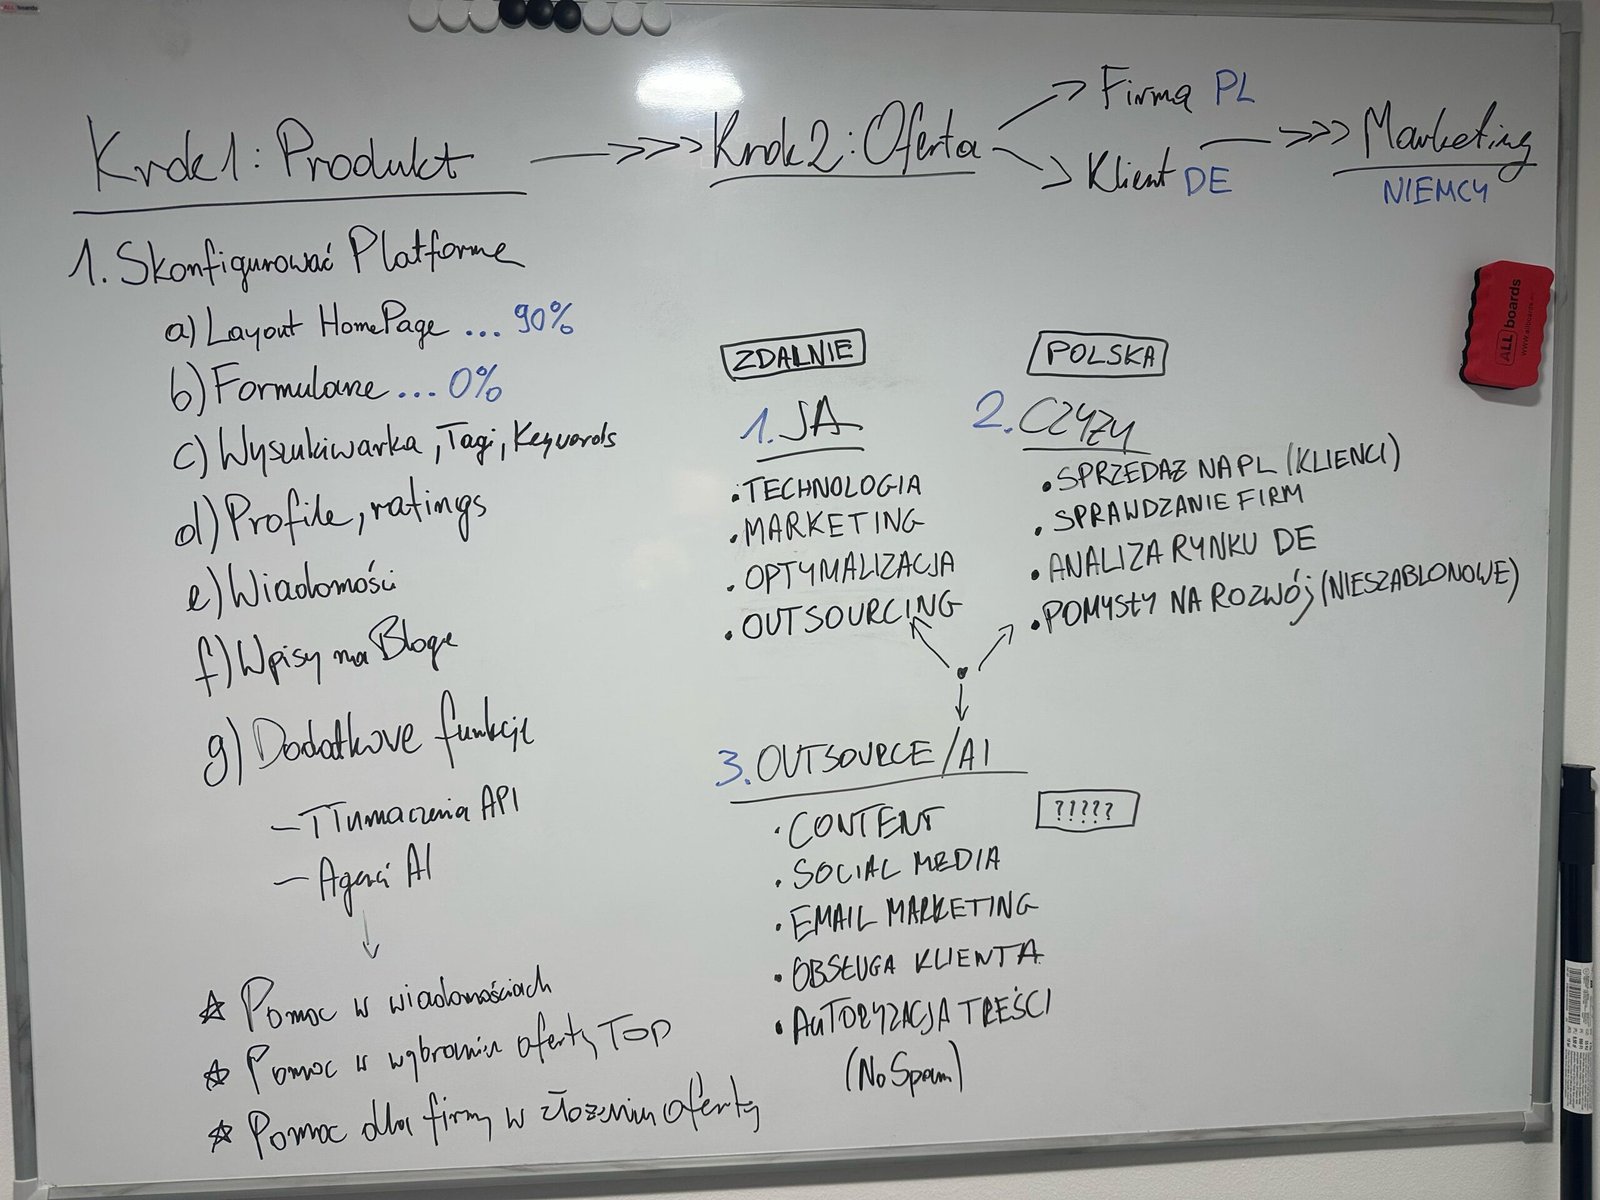 Krok 1: Produkt
Krok 2: Oferta
Firma PL
Klient DE
Marketing
NIEMCY
1. Skonfigurować Platformę
a) Layout HomePage ... 90%
b) Formularze ... 0%
c) Wyszukiwarka, Tagi, Keywords
d) Profile, ratings
e) Wiadomości
f) Wpisy na Bloga
g) Dodatkowe funkcje
- Tłumaczenia API
- Agenci AI
Pomoc w wiadomościach
Pomoc w wybraniu oferty TOP
Pomoc dla firmy w złożeniu oferty
ZDALNIE
1. JA
• TECHNOLOGIA
• MARKETING
• OPTYMALIZACJA
• OUTSOURCING
POLSKA
2. CZYZY
• SPRZEDAŻ NA PL (KLIENCI)
• SPRAWDZANIE FIRM
• ANALIZA RYNKU DE
• POMYSŁY NA ROZWÓJ (NIESZABLONOWE)
3. OUTSOURCE/AI
?????
• CONTENT
• SOCIAL MEDIA
• EMAIL MARKETING
• OBSŁUGA KLIENTA
• AUTORYZACJA TREŚCI
(No Spam)
ALLboards
www.allboards.eu
ALLboards